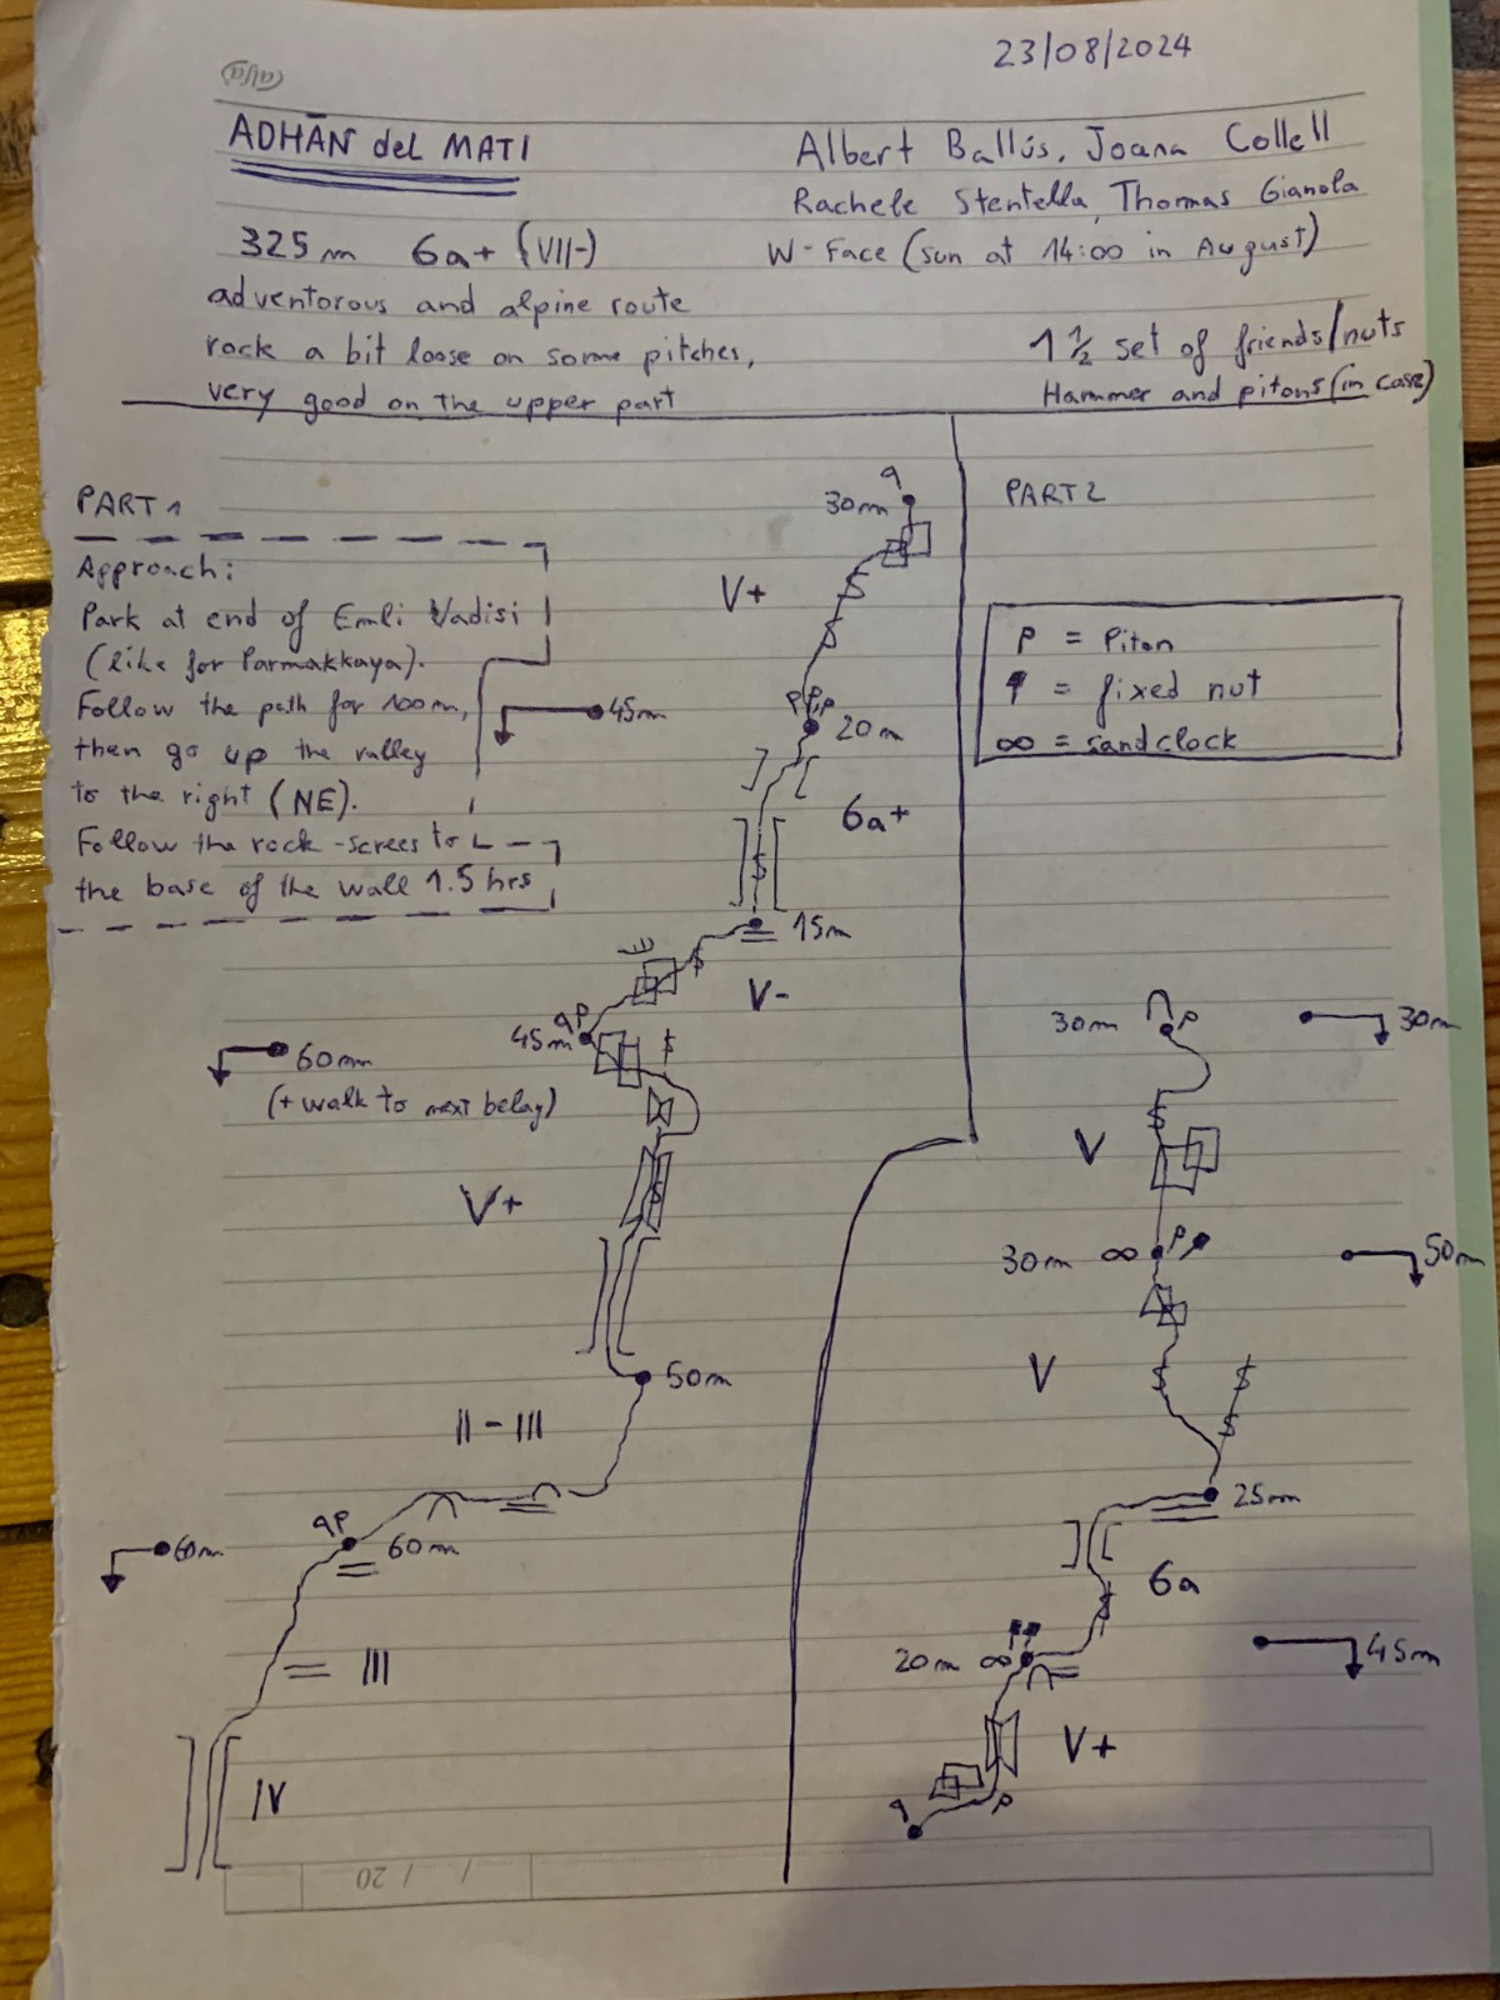 23/08/2024
ADHĀN del MATI
Albert Ballús, Joana Collell
Rachele Stentella, Thomas Gianola
325m 6a+ (VII-)
W-Face (sun at 14:00 in August)
adventorous and alpine route
rock a bit loose on some pitches,
very good on the upper part
1 1/2 set of friends/nuts
Hammer and pitons (in case)
PART 1
Approach:
Park at end of Emli Vadisi
(like for Parmakkaya).
Follow the path for 100m,
then go up the valley
to the right (NE).
Follow the rock-screes to
the base of the wall 1.5 hrs
30m
V+
45m
20m
6a+
15m
V-
45m
60m
(+ walk to next belay)
V+
50m
II - III
60m
60m
III
IV
/ / 20
PART 2
P = Piton
= fixed nut
∞ = sandclock
30m
30m
V
30m ∞
50m
V
25m
6a
20m ∞
45m
V+